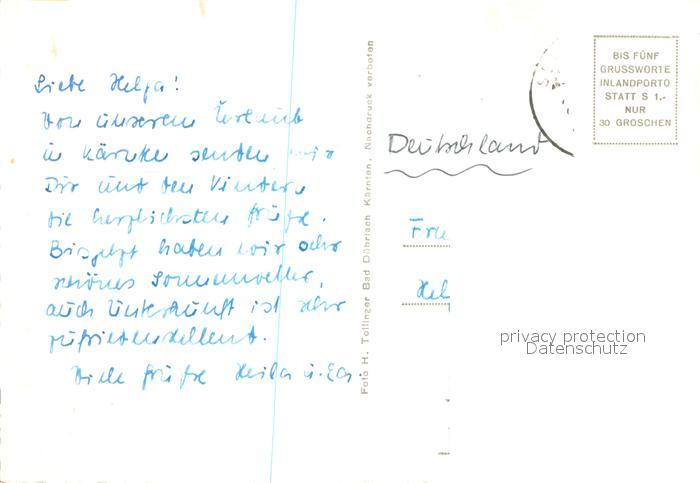 Liebe Helga!
Von unserem Urlaub
in Kärnten senden wir
Dir und den Kindern
die herzlichsten Grüße.
Bisjetzt haben wir sehr
schönes Sommerwetter,
auch Unterkunft ist sehr
zufriedenstellent.
Viele Grüße u.
Foto H. Tollinger Bad Döbriach Kärnten, Nachdruck verboten
BIS FÜNF
GRUSSWORTE
INLANDPORTO
STATT S 1,-
NUR
30 GROSCHEN
Deutschland
Frau
Hel
privacy protection
Datenschutz